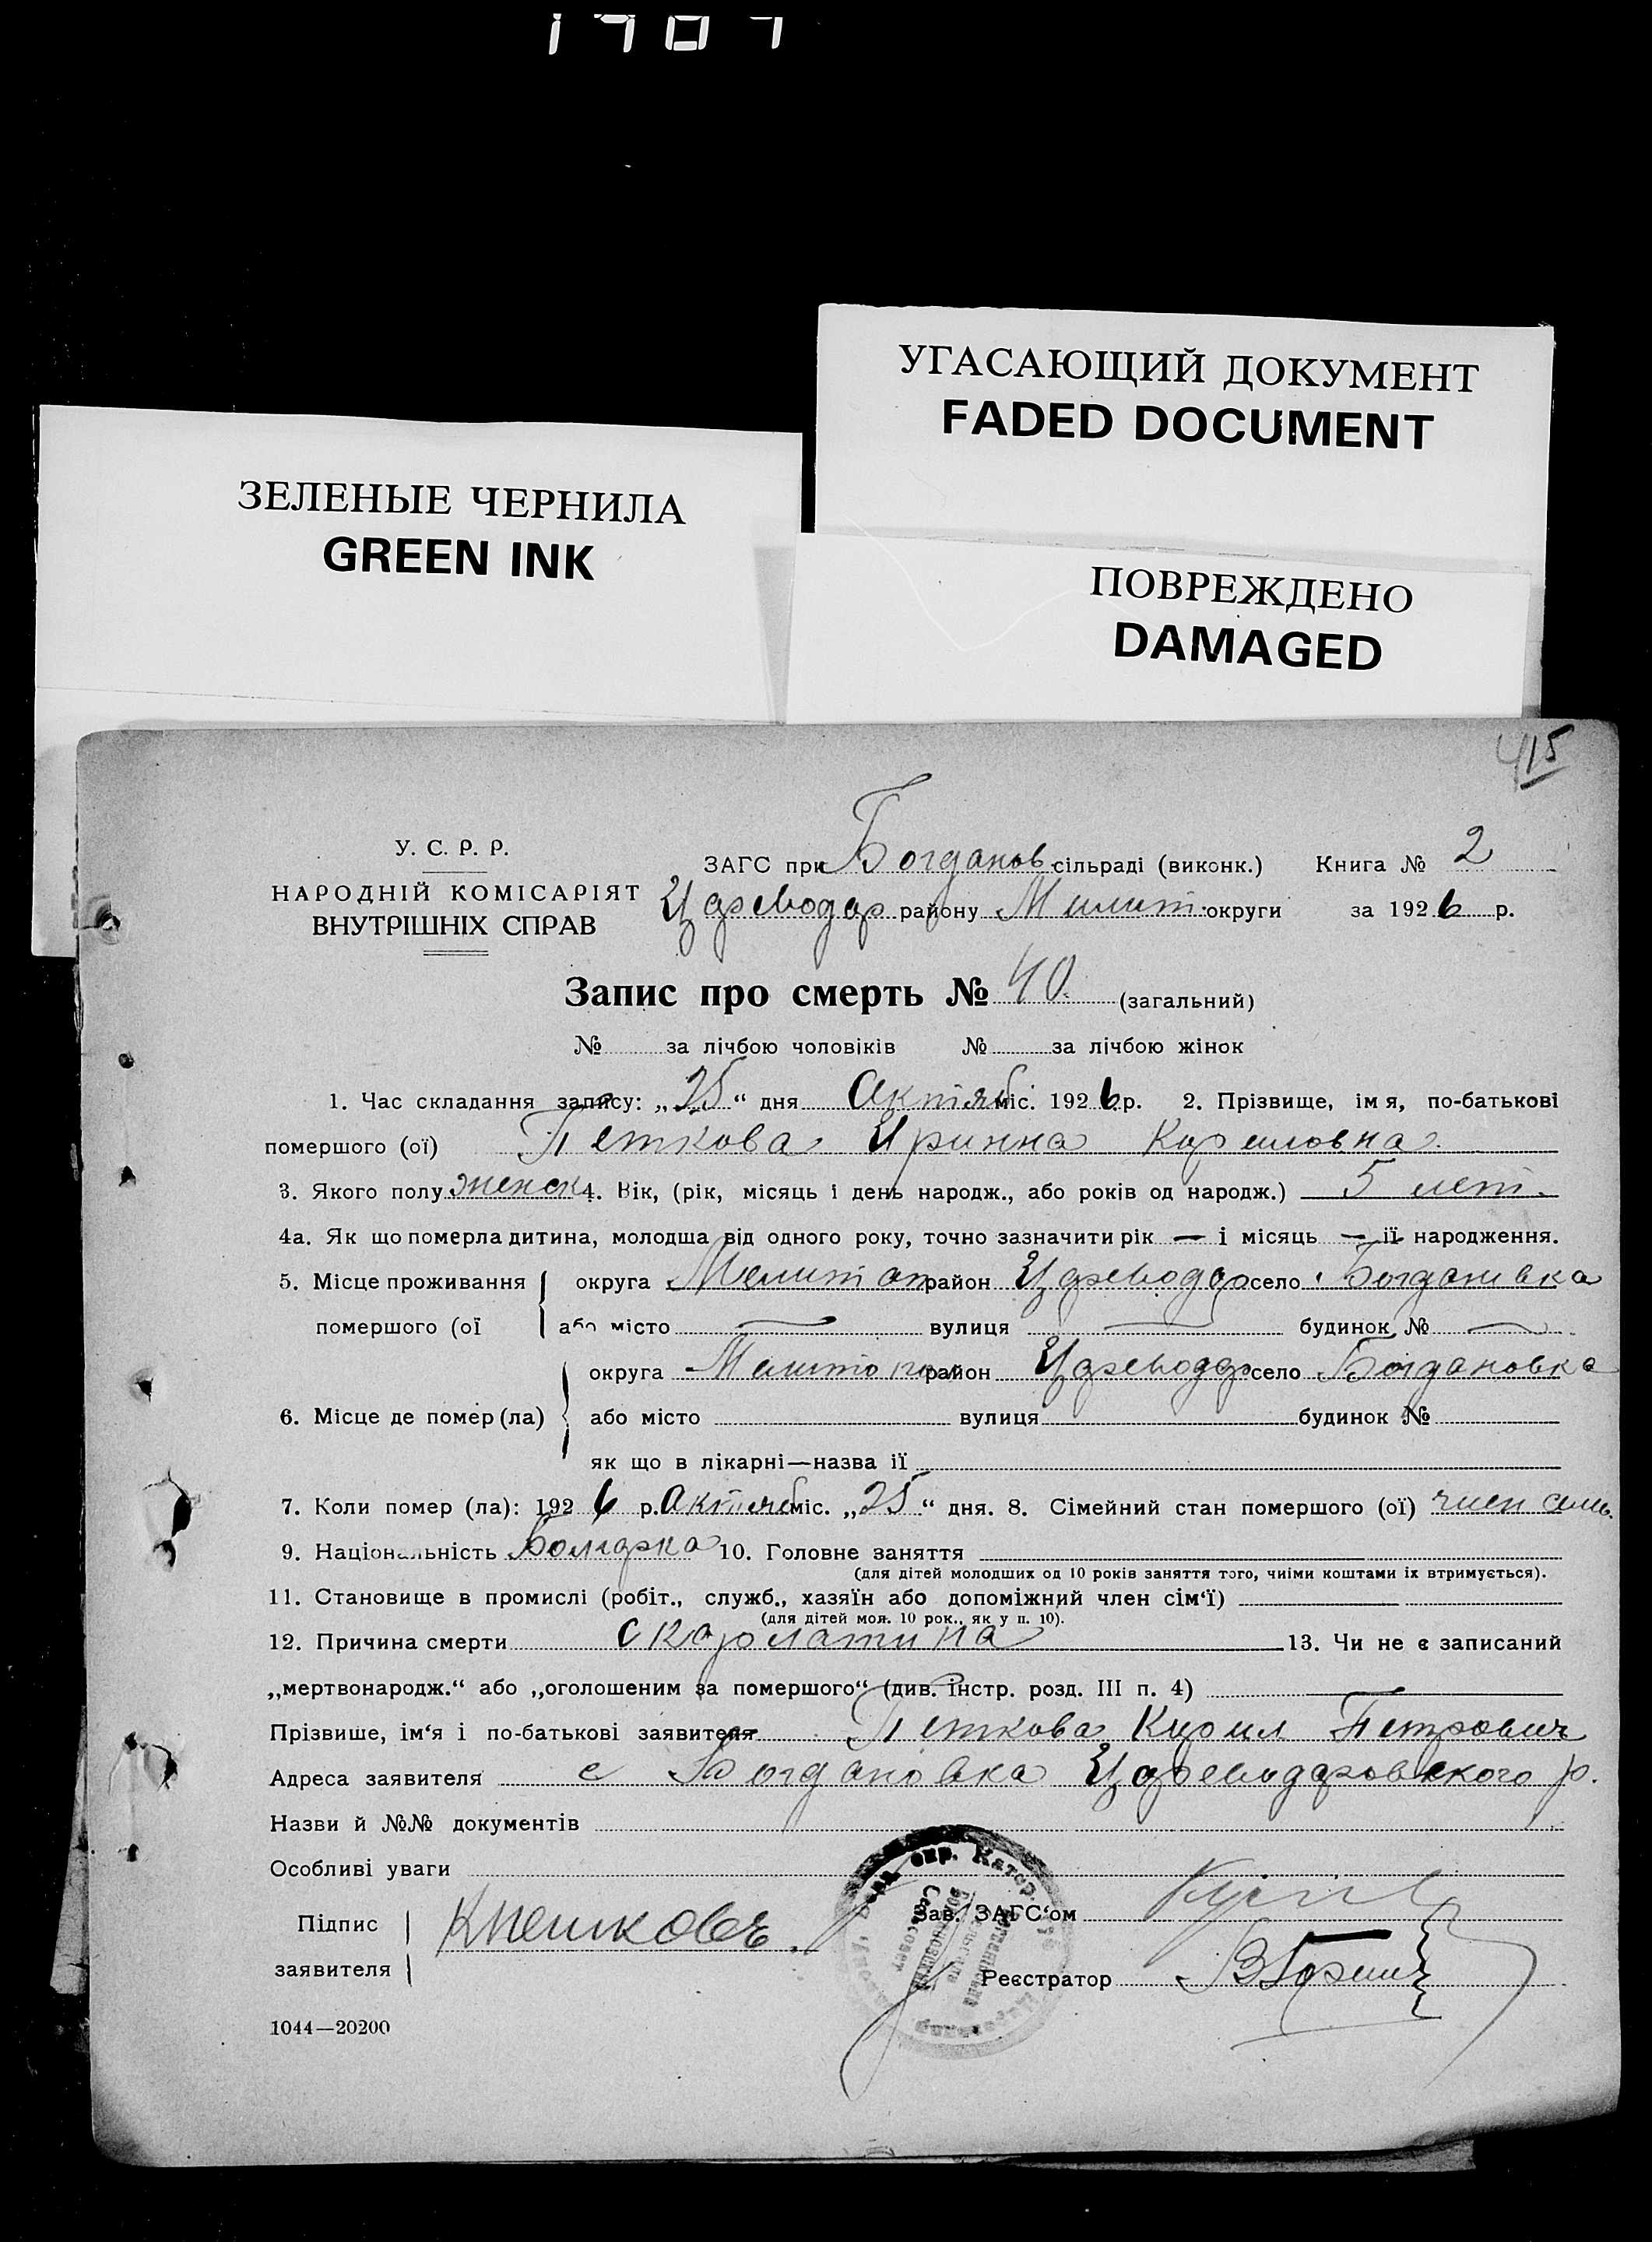 УГАСАЮЩИЙ ДОКУМЕНТ
FADED DOCUMENT
ЗЕЛЕНЫЕ ЧЕРНИЛА
GREEN INK
ПОВРЕЖДЕНО
DAMAGED
415
У. С. Р. Р.
НАРОДНІЙ КОМІСАРІЯТ
ВНУТРІШНІХ СПРАВ
ЗАГС при Богданов. сільраді (виконк.) Книга № 2
Цареводар району Мелит. округи за 1926 р.
Запис про смерть № 40. (загальний)
№ за лічбою чоловіків № за лічбою жінок
1. Час складання запису: „25“ дня Октяб міс. 1926 р. 2. Прізвище, імя, по-батькові
помершого (ої) Петкова Иринна Кириловна
3. Якого полу женск 4. Вік, (рік, місяць і день народж., або років од народж.) 5 лет.
4а. Як що померла дитина, молодша від одного року, точно зазначити рік — і місяць — її народження.
5. Місце проживання округа Мелитоп район Цареводар село Богдановка
помершого (ої або місто — вулиця — будинок № —
округа Мелитопол район Цареводар село Богдановка
6. Місце де помер (ла) або місто вулиця будинок №
як що в лікарні—назва її
7. Коли помер (ла): 1926 р. Октяб міс. „25“ дня. 8. Сімейний стан помершого (ої) член семь.
9. Національність Болгарка 10. Головне заняття
(для дітей молодших од 10 років заняття того, чиіми коштами іх втримується).
11. Становище в промислі (робіт., служб., хазяїн або допоміжний член сім‘ї)
(для дітей мол. 10 рок., як у п. 10).
12. Причина смерти скарлатина 13. Чи не є записаний
„мертвонародж.“ або „оголошеним за помершого“ (див. інстр. розд. III п. 4)
Прізвише, ім‘я і по-батькові заявителя Петкова Кирил Петрович
Адреса заявителя с Богдановка Цареводаровского р.
Назви й №№ документів
Особливі уваги
Підпис
заявителя
К Петковъ.
Зав. ЗАГС‘ом
Реєстратор
1044—20200